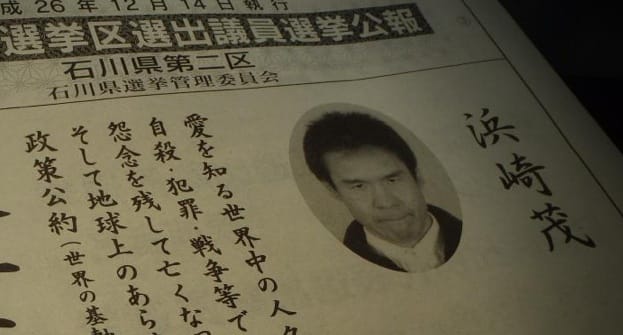 成26年12月14日執行
選挙区選出議員選挙公報
石川県第二区
石川県選挙管理委員会
浜崎茂
愛を知る世界中の人々
自殺・犯罪・戦争等で
怨念を残して亡くな
そして地球上のあら
政策公約(世界の基